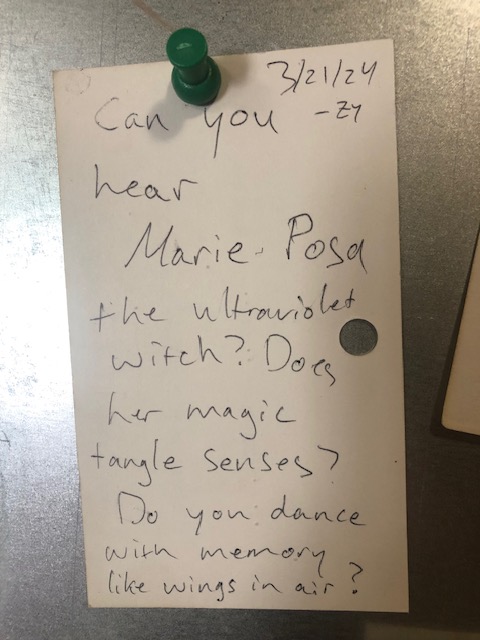 3/21/24
Can you -ZY
hear
Marie Posa
the ultraviolet
witch? Does
her magic
tangle senses?
Do you dance
with memory
like wings in air?